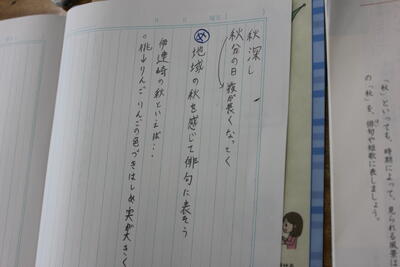 「秋」といっても、時期によって、見られる風景は
の「秋」を、俳句や短歌に表しましょう。
月 日 曜日( )
秋深し
秋分の日 夜が長くなってく
め 地域の秋を感じて俳句に表そう
伊達崎の秋といえば・・
。桃→りんご りんごの色づきはじめ 実が大きく